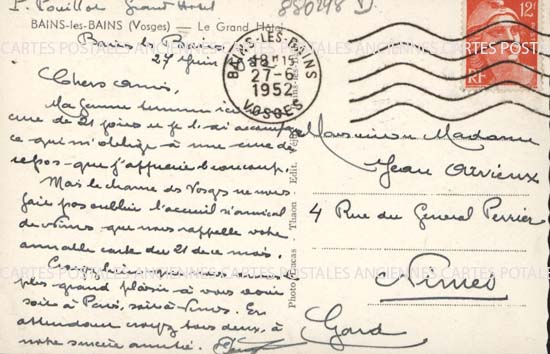 P. Pouillot Grand Hotel
880248 D
BAINS-les-BAINS (Vosges) — Le Grand Hôtel
Bains les Bains
27 Juin
BAINS-LES-BAINS
18 H 15
27-6
1952
VOSGES
12F
RF
Chers amis,
Ma femme termine ici une
cure de 21 jours et je l'ai accompagnée
ce qui m'oblige à une cure de
repos - que j'apprécie beaucoup.
Mais le charme des Vosges ne nous
fait pas oublier l'accueil si amical
de Nîmes que nous rappelle votre
aimable carte du 21 de ce mois.
plus grand plaisir à vous revoir
soit à Paris, soit à Nîmes. En
attendant croyez tous deux, à
notre sincère amitié.
Photo Edit. Thaon
Monsieur Madame
Jean Arvieux
4 Rue du General Perrier
Nimes
Gard
CARTES POSTALES ANCIENNES CARTES POSTALES ANCIENNES CARTES POSTALES